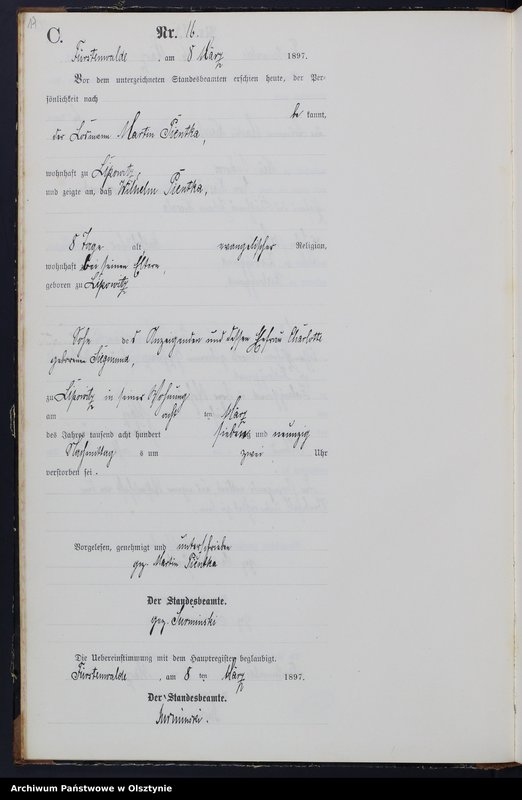 C. Nr. 16.
Fürstenwalde, am 8 März 1897.
Vor dem unterzeichneten Standesbeamten erschien heute, der Per-
sönlichkeit nach
be kannt,
der Losmann Martin Pientka,
wohnhaft zu Lipowitz,
und zeigte an, daß Wilhelm Pientka,
8 Tage alt, evangelischer Religion,
wohnhaft bei seinen Eltern,
geboren zu Lipowitz
Sohn des Anzeigenden und dessen Ehefrau Charlotte
geborenen
zu Lipowitz in seiner Wohnung
am acht ten März
des Jahres tausend acht hundert sieben und neunzig
Nachmittag s um zwei Uhr
verstorben sei.
Vorgelesen, genehmigt und unterschrieben
gez. Martin Pientka
Der Standesbeamte.
gez. Surminski
Die Uebereinstimmung mit dem Hauptregister beglaubigt.
Fürstenwalde, am 8 ten März 1897.
Der Standesbeamte.
Surminski.
Archiwum Państwowe w Olsztynie